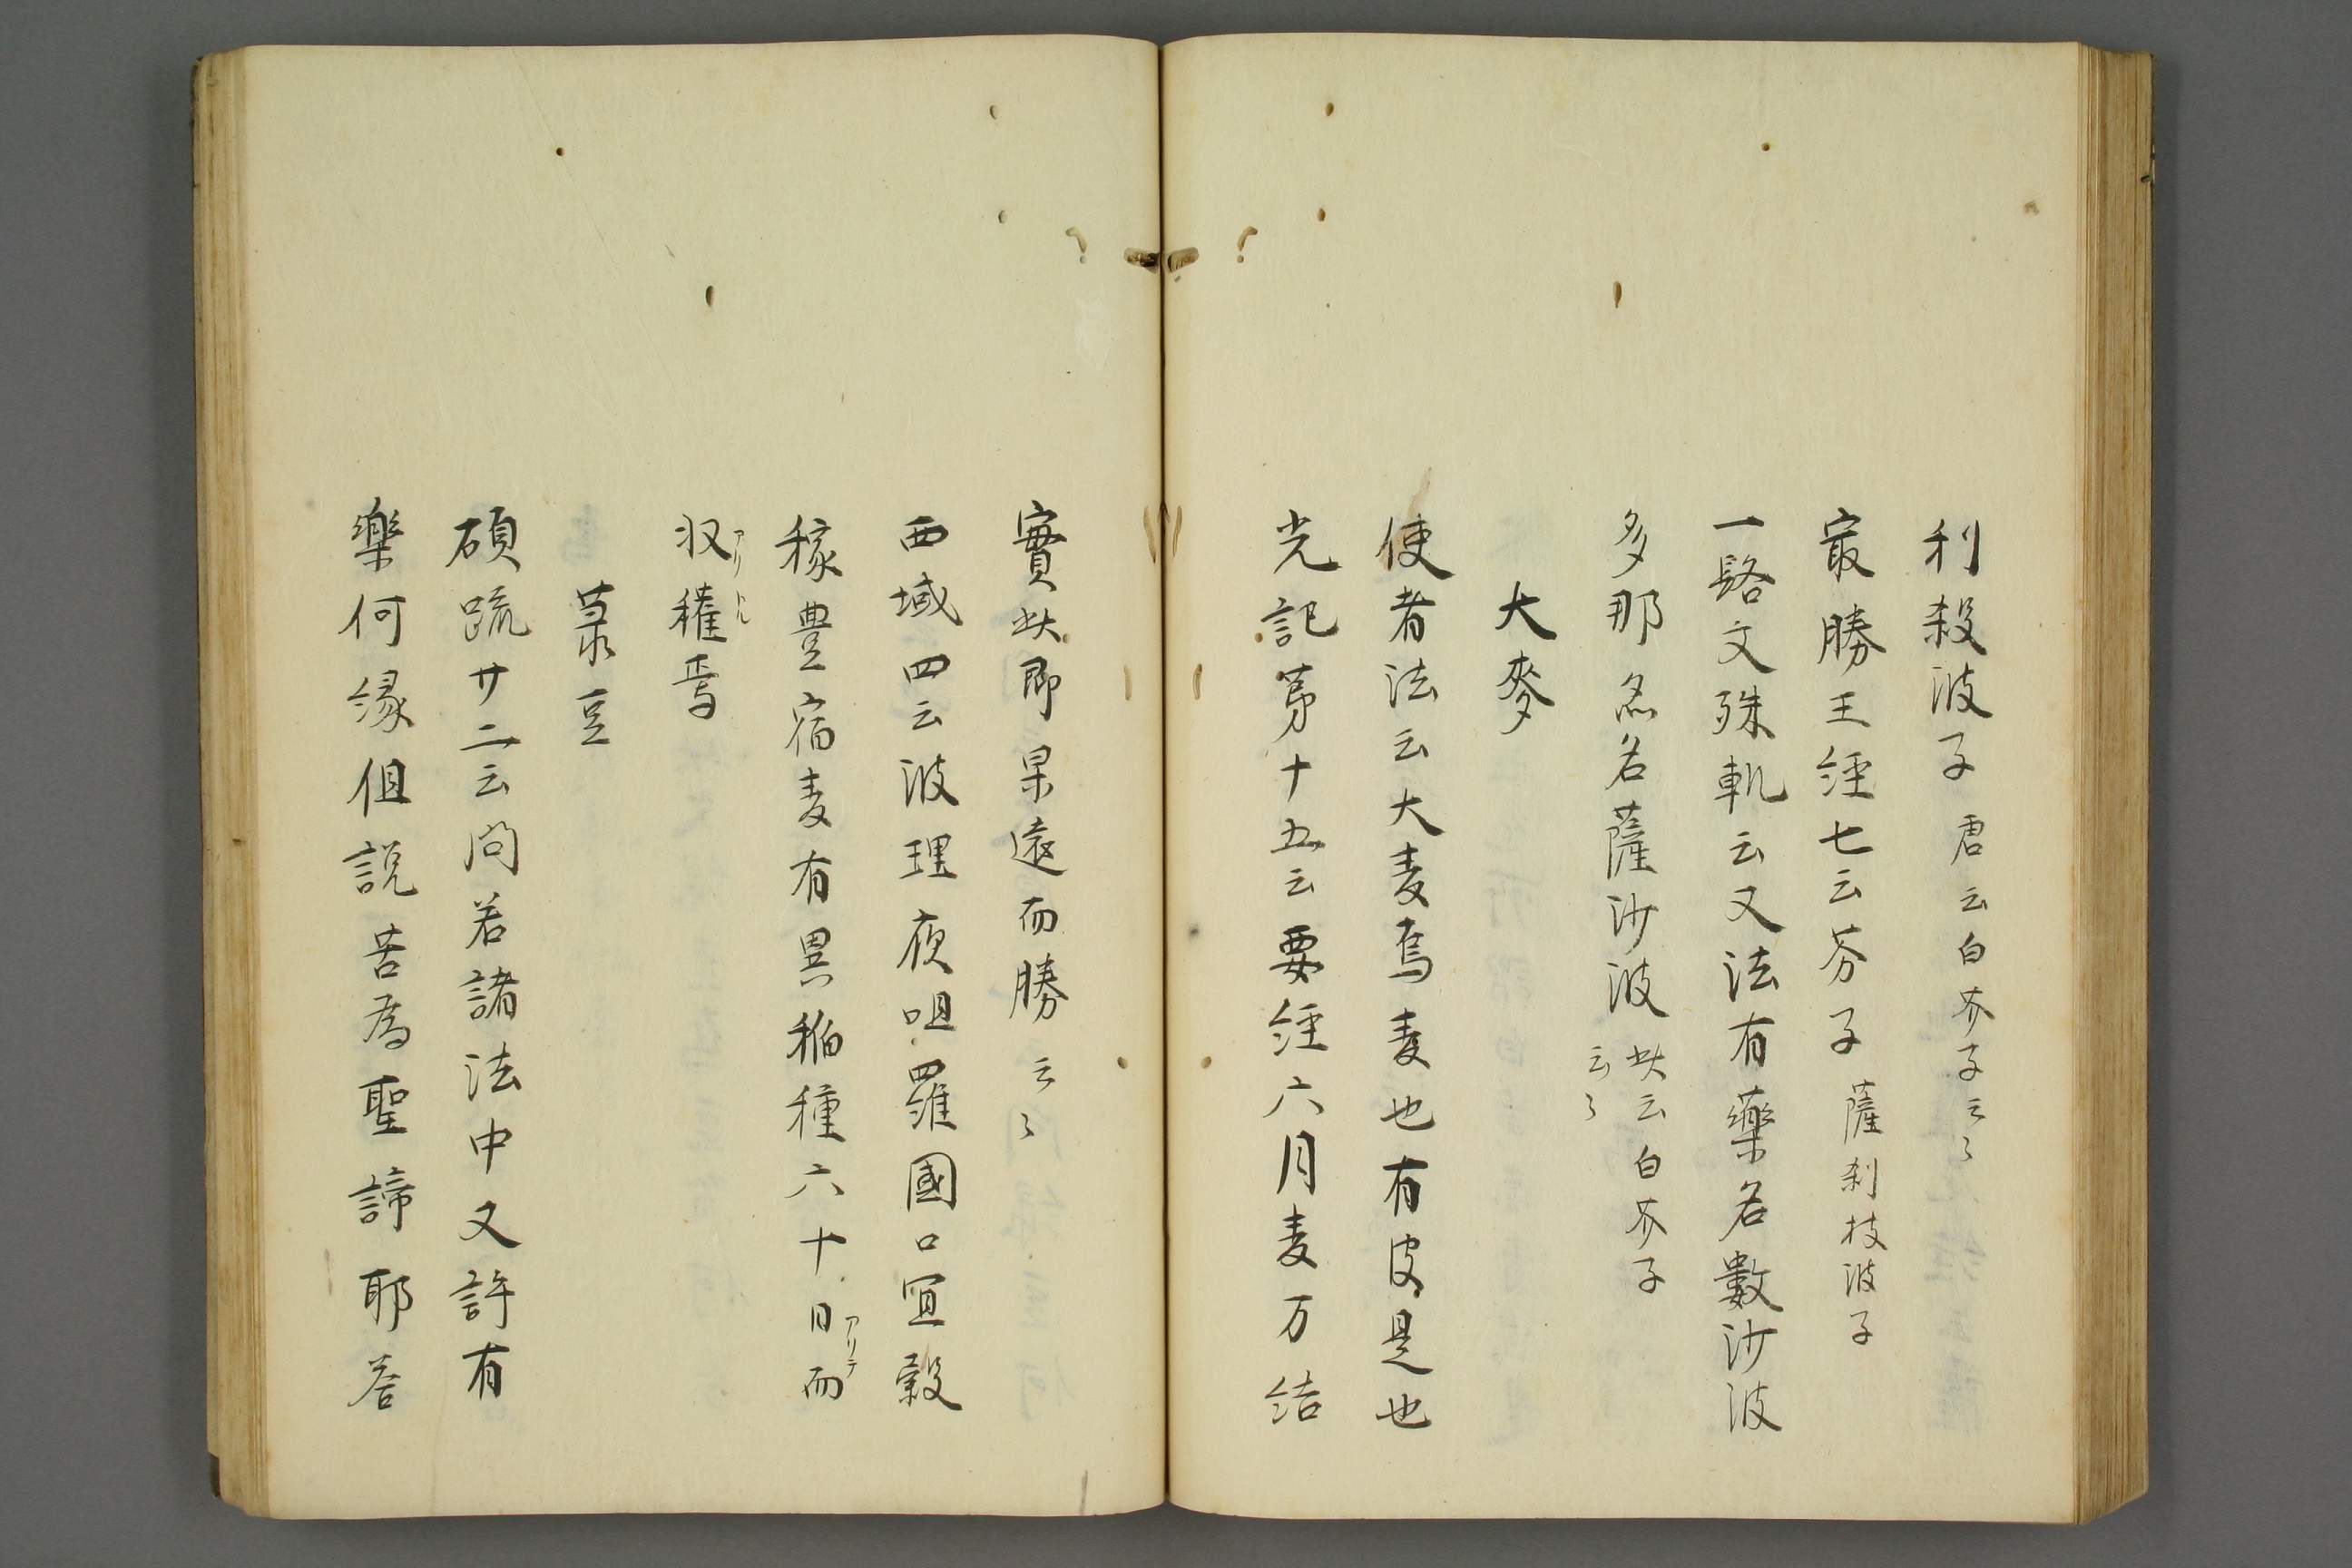 利殺波子 唐云白芥子云々
最勝王經七云芥子 薩刹枝波子
一髻文殊軌云又法有藥名數沙波
多那名名薩沙波 此云白芥子
云々
大麥
使者法云大麦篶麦也有皮是也
光記第十五云要經六月麦方結
實此即果遠而勝 云々
西域四云波理夜呾羅國口宜穀
稼豊宿麦有異稲種六十日而
アリテ
収穫焉
菉豆
碩疏廿二云問若諸法中又許有
樂何縁但説苦為聖諦耶答